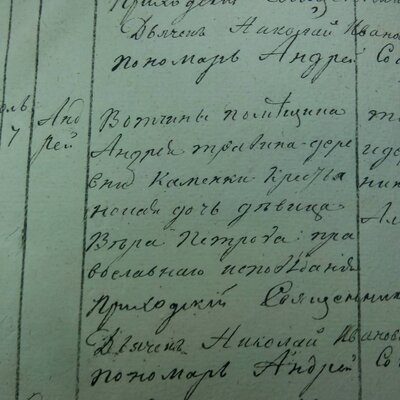 Приходскій Священник
Дьяченъ Николай Ивано
пономарь Андрей Со
оль
7
Анд
рей
Вотчины помѣщица
Андрея травина дере
вни Каменки крестья
нская дочь дѣвица
Вѣра Петрова пра
вославнаго исповѣданія
приходскій Священник
Дьяченъ Николай Иванов
пономарь Андрей Со